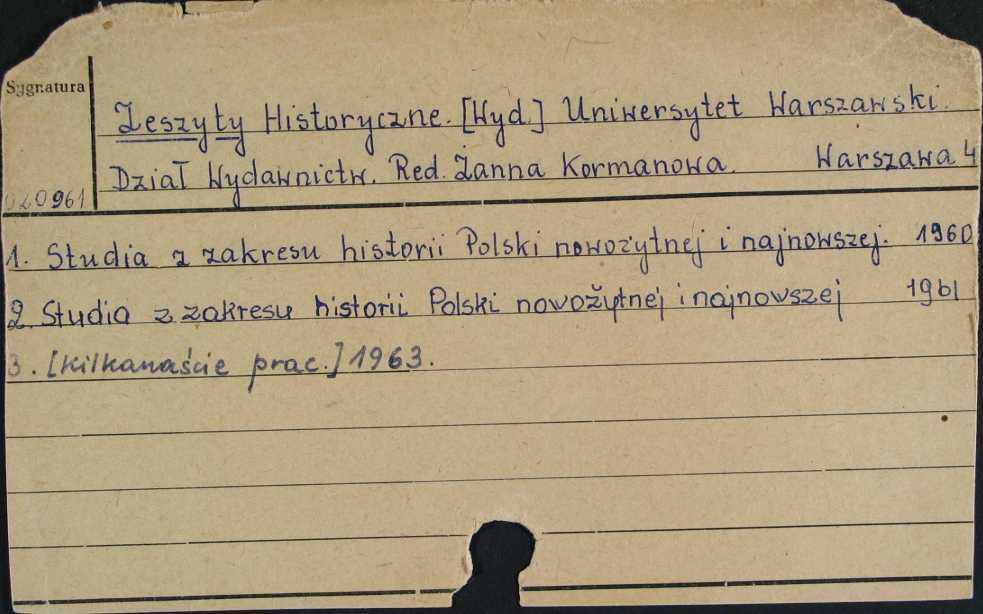 Sygnatura
Zeszyty Historyczne. [Wyd.] Uniwersytet Warszawski.
Dział Wydawnictw. Red. Żanna Kormanowa. Warszawa 4
020961
1. Studia z zakresu historii Polski nowożytnej i najnowszej. 1960
2. Studia z zakresu historii Polski nowożytnej i najnowszej 1961
3. [Kilkanaście prac.] 1963.